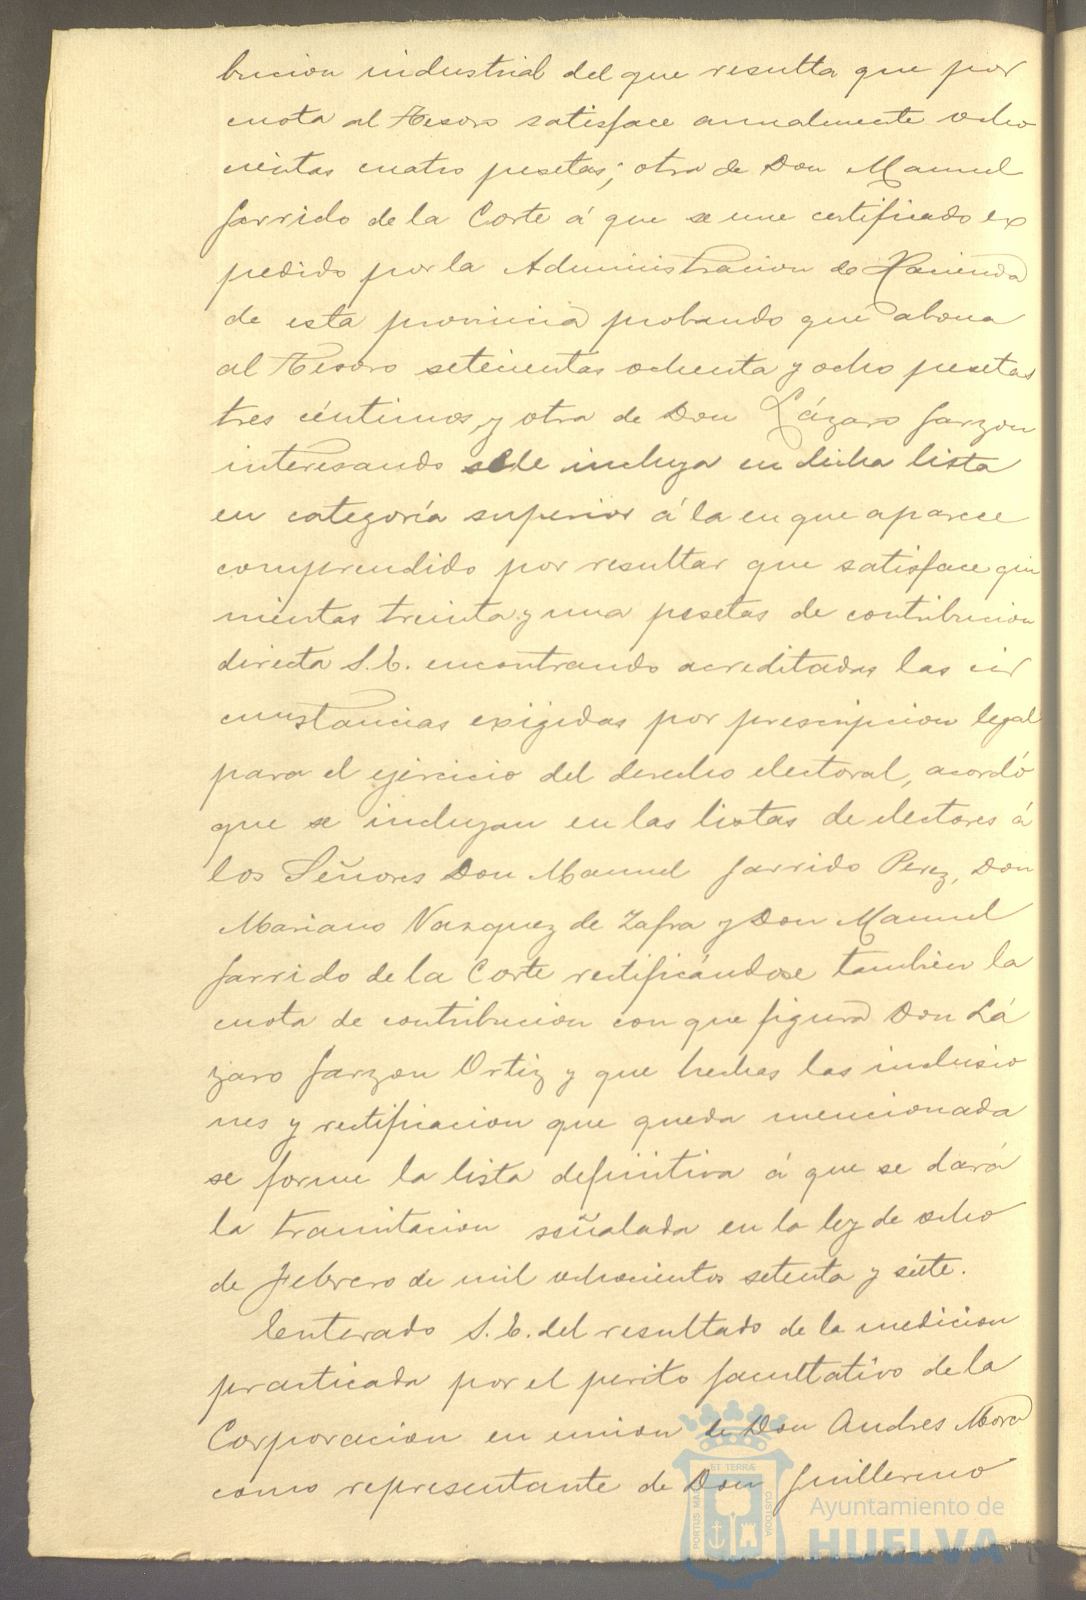 bucion industrial del que resulta que por
cuota al Tesoro satisface anualmente ocho
cientas cuatro pesetas; otra de Don Manuel
Garrido de la Corte á que se une certificado ex
pedido por la Administracion de Hacienda
de esta provincia probando que abona
al Tesoro setecientas ochenta y ocho pesetas
tres céntimos, y otra de Don Lázaro Garzon
interesando se le incluya en dicha lista
en categoría superior á la en que aparece
comprendido por resultar que satisface qui
nientas treinta y una pesetas de contribucion
directa S. E. encontrando acreditadas las cir
cunstancias exigidas por prescripcion legal
para el ejercicio del derecho electoral, acordó
que se incluyan en las listas de electores á
los Señores Don Manuel Garrido Perez, Don
Mariano Vazquez de Zafra y Don Manuel
Garrido de la Corte rectificándose tambien la
cuota de contribucion con que figura Don Lá
zaro Garzon Ortiz y que hechas las inclusio
nes y rectificacion que queda mencionada
se forme la lista definitiva á que se dará
la tramitacion señalada en la ley de ocho
de Febrero de mil ochocientos setenta y siete.
Enterado S. E. del resultado de la medicion
practicada por el perito facultativo de la
Corporacion en union de Don Andres Mora
como representante de Don Guillermo
ET TERRÆ
PORTUS MARIS
CUSTODIA
Ayuntamiento de
HUELVA